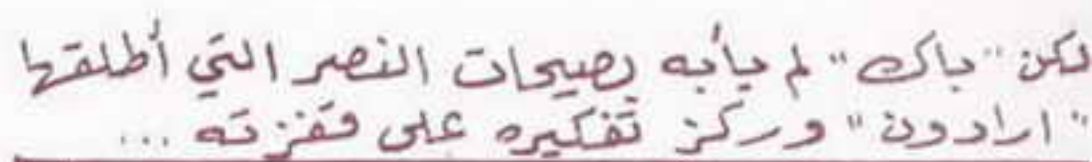 لكن "باك" لم يأبه بصيحات النصر التي أطلقها
"ارادون" وركز تفكيره على قفزته ...